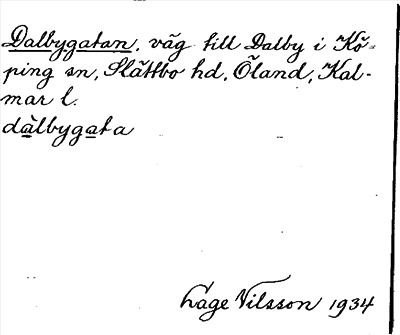 Dalbygatan, väg till Dalby i Kö-
ping sn, Slättbo hd, Öland, Kal-
mar l.
dàlbygata
Lage Nilsson 1934